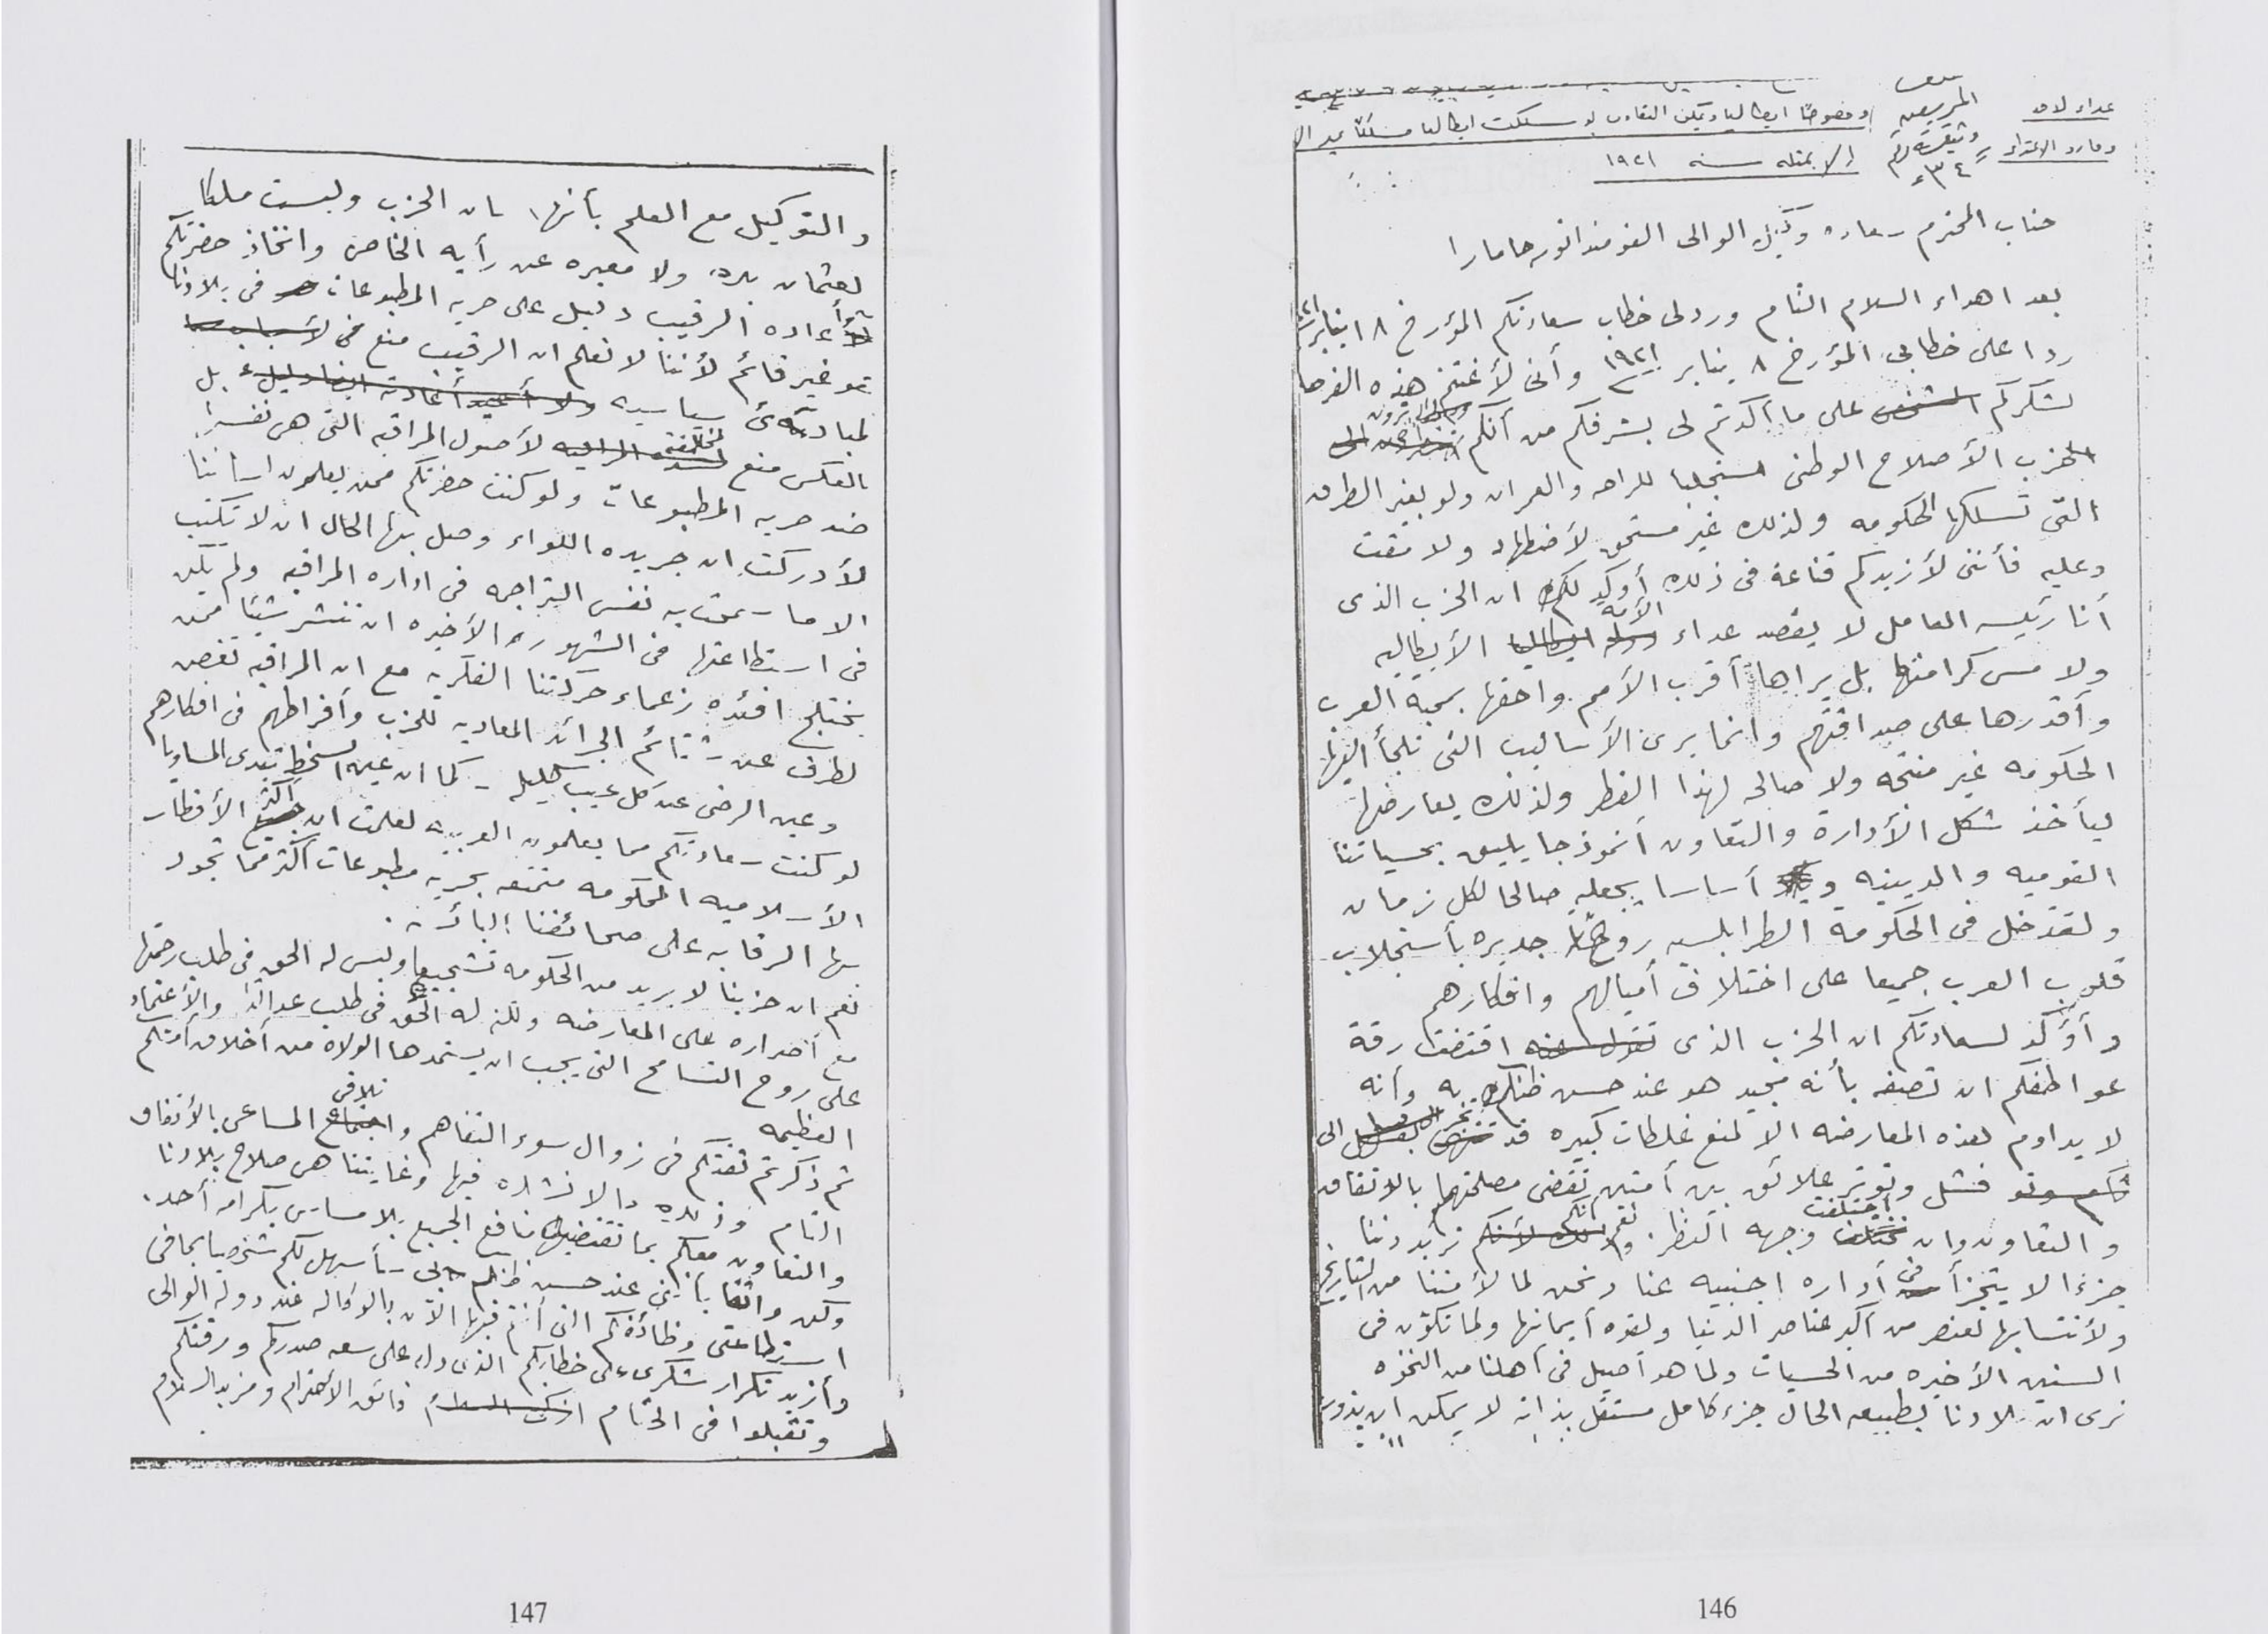 وثيقة رقم
٣٤
وخصوصا ايطاليا ويمكن التعاون لو سلكت ايطاليا مسلكا
سنه ١٩٢١
جناب المحترم سعاده وكيل الوالى القومندانور
بعد اهداء السلام التام ورد لى خطاب سعادتكم المؤرخ ١٨ يناير
ردا على خطابى المؤرخ ٨ يناير ١٩٢١ وأنى لأغتنم هذه الفرصا
لشكركم على ما أكدتم لى بشرفكم من أنكم
الحزب الأصلاح الوطنى مستجلبا للراحه والعمران ولو بغير الطرق
التى تسلكها الحكومه ولذلك غير مستحق لأضطهاد ولا مقت
وعليه فأننى لأزيدكم قناعة فى ذلك أوكد لكم ان الحزب الذى
أنا رئيسه العامل لا يقصد عداء الأمه الأيطاليه
ولا مس كرامتها بل يراها أقرب الأمم واحقها بمحبة العرب
وأقدرها على صداقتهم وانما يرى الأساليب التى تلجأ اليها
الحكومه غير منتجه ولا صالحه لهذا القطر ولذلك يعارضها
ليأخذ شكل الأدارة والتعاون أنموذجا يليق بحسياتنا
القوميه والدينيه و أساسا يجعله صالحا لكل زمان
ولقد خل فى الحكومة الطرابلسيه روحا جديره بأستجلاب
قلوب العرب جميعا على اختلاف أميالهم وافكارهم
وأؤكد لسعادتكم ان الحزب الذى اقتضت رقة
عواطفكم ان تصفه بأنه مجيد هو عند حسن ظنكم به وأنه
لا يداوم لهذه المعارضه الا لمنع غلطات كبيره قد تنجر الى
فشل وتوتر علائق بين أمتين تقضى مصلحتهما بالاتفاق
والتعاون وان أختلفت وجهه النظر. نعم انكم تريدوننا
جزءا لا يتجزأ فى أداره اجنبيه عنا ونحن لما لأمتنا من التاريخ
ولأنتسابها لعنصر من أكبر عناصر الدنيا ولقوه أيمانها ولما تكون فى
السنين الأخيره من الحسيات ولما هو أصيل فى أهلنا من النخوه
نرى ان بلادنا بطبيعه الحال جزء كامل مستقل بذاته لا يمكن ان يذوب
146
والتوكيل مع العلم بأنها لسان الحزب وليست ملكا
لعثمان بك ولا معبره عن رأيه الخاص واتخاذ حضرتكم
أعاده الرقيب دليل على حريه المطبوعات فى بلادنا
غير قائم لأننا لا نعلم ان الرقيب منع
لمبادئ سياسيه بل
بالعكس منع لمخالفته لأصول المراقبه التى هى نفسها
ضد حريه المطبوعات ولو كنت حضرتكم ممن يعلمون لساننا
لأدركت ان جريده اللواء وصل بها الحال ان لا تكتب
الا ما سمحت به نفس التراجمه فى اداره المراقبه ولم يكن
فى استطاعتها فى الشهور الأخيره ان تنشر شيئا ممن
يختلج افئده زعماء حركتنا الفكريه مع ان المراقبه تغض
لطرف عن شتائم الجرائد المعاديه للحزب وأفراطهم فى افكارهم
وعين الرضى عن كل عيب كليله - كما ان عين السخط تبدى المساويا
لو كنت سعادتكم مما يعلمون العربيه لعلمت ان أكثر الأقطار
الأسلاميه المحكومه متمتعه بحريه مطبوعات أكثر مما تجود
بها الرقابه على صحائفنا البائسه .
نعم ان حزبنا لا يريد من الحكومه تشجيعا وليس له الحق فى طلب رحمتها
مع أصراره على المعارضه ولكنه له الحق فى طلب عدالتها والأعتماد
على روح التسامح التى يجب ان يستمدها الولاة من أخلاق أمتكم
العظيمه
ثم ذكرتم ثقتكم فى زوال سوء التفاهم و تلاقى المساعى بالأتفاق
التام وذلك ما لا نشك فيها وغايتنا هى صلاح بلادنا
والتعاون معكم بما تقتضيه منافع الجميع بلا مساس بكرامه أحد.
وكن واثقا بأنى عند حسن ظنكم بى سأسهل لكم شخصيا بما فى
استطاعتى وظائفكم التى أنتم فيها الآن بالوكاله عند دولة الوالى
وأزيد تكرار شكرى على خطابكم الذى دل على سعه صدركم ورقتكم
وتقبلوا فى الختام فائق الأحترام ومزيد السلام
147